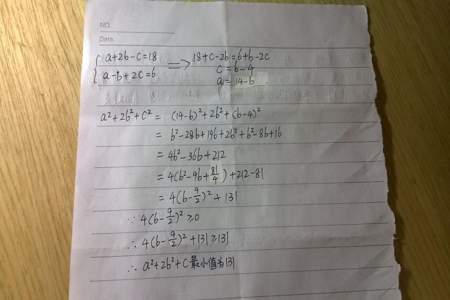 NO.
Date.
{ a+2b-c=18 => 18+c-2b=6+b-2c
a-b+2c=6 c=b-4
a=14-b
a²+2b²+c² = (14-b)²+2b²+(b-4)²
= b²-28b+196+2b²+b²-8b+16
= 4b²-36b+212
= 4(b²-9b+81/4)+212-81
= 4(b-9/2)²+131
∵ 4(b-9/2)²≥0
∴ 4(b-9/2)²+131≥131
∴ a²+2b²+c最小值为131